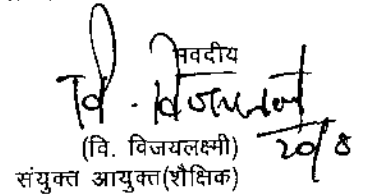 भवदीय
वि. विजयलक्ष्मी
20/8
(वि. विजयलक्ष्मी)
संयुक्त आयुक्त(शैक्षिक)